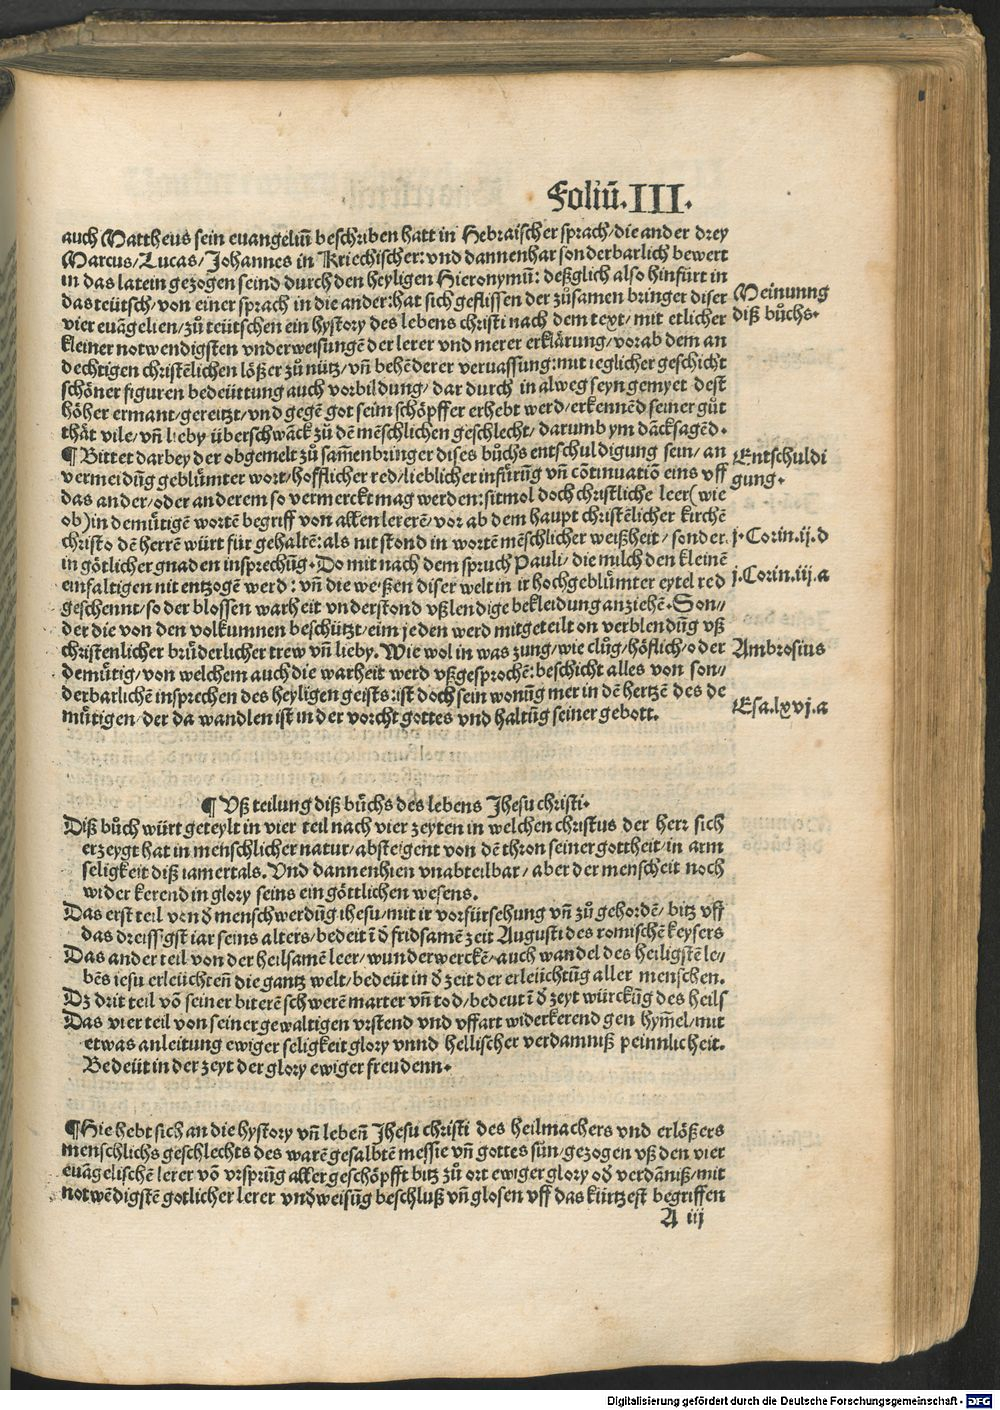 Foliū.III.
auch Mattheus sein euangeliū beschriben hatt in Hebraischer sprach/die ander drey
Marcus/Lucas/Johannes in Kriechischer: vnd dannenhar sonderbarlich bewert
in das latein gezogen seind durch den heyligen Hieronymū: deßglich also hinfürt in
das teütsch/von einer sprach in die ander:hat sich geflissen der zůsamen bringer diser
Meinunng
vier euāgelien/zů teütschen ein hystory des lebens christi nach dem text/mit etlicher
diß bůchs.
kleiner notwendigsten vnderweisungē der lerer vnd merer erklärung/vorab dem an
dechtigen christēlichen lößer zů nütz/vn̄ behēderer veruassung:mit ieglicher geschicht
schöner figuren bedeüttung auch vorbildung/dar durch in alweg seyn gemyet dest
höher ermant/gereitzt/vnd gegē got seim schöpffer erhebt werd/erkennēd seiner gůt
thät vile/vn̄ lieby überschwāck zů dē mēschlichen geschlecht/darumb ym dācksagēd.
¶ Bittet darbey der obgemelt zů sam̄enbringer dises bůchs entschuldigung sein/an
Entschuldi
vermeidūg geblůmter wort/hofflicher red/lieblicher infůrūg vn̄ cōtinuatiō eins vff
gung.
das ander/oder anderem so vermerckt mag werden:sitmol doch christliche leer(wie
ob)in demůtigē wortē begriff von allen lererē/vor ab dem haupt christēlicher kirchē
christo dē herrē würt für gehaltē:als nit stond in wortē mēschlicher weißheit/sonder
j.Corin.ij.d
in götlicher gnaden insprechūg.Do mit nach dem spruch Pauli/die milch den kleinē
j.Corin.iij.a
einfaltigen nit entzogē werd: vn̄ die weißen diser welt in ir hochgeblůmter eytel red
geschennt/so der blossen warheit vnderstond vßlendige bekleidung anziehē.Son//
der die von den volkumnen beschützt/eim jeden werd mitgeteilt on verblendūg vß
christenlicher brůderlicher trew vn̄ lieby.Wie wol in was zung/wie clůg/höflich/oder
Ambrosius
demůtig/von welchem auch die warheit werd vßgesprochē:beschicht alles von son//
derbarlichē insprechen des heyligen geists:ist doch sein wonūg mer in dē hertzē des de
Esa.lxvj.a
můtigen/der da wandlen ist in der vorcht gottes vnd haltūg seiner gebott.
¶ Vß teilung diß bůchs des lebens Jhesu christi.
Diß bůch würt geteylt in vier teil nach vier zeyten in welchen christus der herr sich
erzeygt hat in menschlicher natur/absteigent von dē thron seiner gottheit/in arm
seligkeit diß iamertals.Vnd dannenhien vnabteilbar/aber der menscheit noch
wider kerend in glory seins ein göttlichen wesens.
Das erst teil von d̄ menschwerdūg ihesu/mit ir vorfürsehung vn̄ zů gehordē/bitz vff
das dreissigst iar seins alters/bedeit ī d̄ fridsamē zeit Augusti des romischē keysers
Das ander teil von der heilsamē leer/wunderwerckē/auch wandel des heiligstē le//
bēs iesu erleüchteñ die gantz welt/bedeüt in d̄ zeit der erleüchtūg aller menschen.
Dz drit teil vō seiner biterē schwerē marter vn̄ tod/bedeut ī d̄ zeyt würckūg des heils
Das vier teil von seiner gewaltigen vrstend vnd vffart widerkerend gen hym̄el/mit
etwas anleitung ewiger seligkeit glory vnnd hellischer verdamniß peinnlicheit.
Bedeüt in der zeyt der glory ewiger freudenn.
¶Hie hebt sich an die hystory vn̄ lebeñ Jhesu christi des heilmachers vnd erlößers
menschlichs geschlechts des warē gesalbtē messie vn̄ gottes sůn/gezogen vß den vier
euāgelischē lerer vō vrsprūg aller geschöpfft bitz zů ort ewiger glory od̄ verdāniß/mit
notwēdigstē gotlicher lerer vnd̄weisūg beschluß vn̄ glosen vff das kürtzest begriffen
A iij
Digitalisierung gefördert durch die Deutsche Forschungsgemeinschaft - DFG